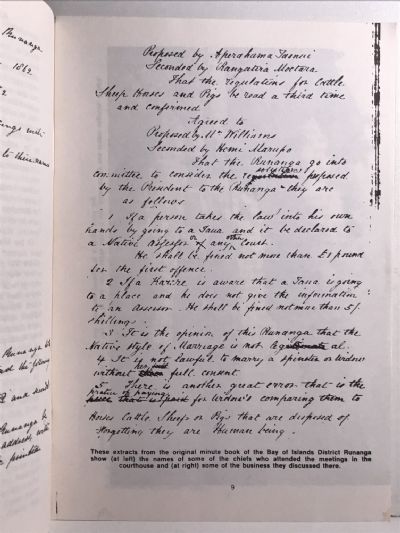 Runanga
1862
2
ings with
to their names
Runanga be
and the follow
I and send
Runanga be
address with
printer
Proposed by Aperahama Taonui
Seconded by Rangatira Moetara
That the regulations for Cattle
Sheep Horses and Pigs be read a third time
and confirmed
Agreed to
Proposed by Mr Williams
Seconded by Hemi Marupo
That the Runanga go into
committee to consider the regulations proposed
by the President to the Runanga - they are
as follows
1 If a person takes the law into his own
hands by going to a Taua and it be declared to
a Native Assessor or any other Court.
He shall be fined not more than £1 pound
for the first offence.
2 If a Karere is aware that a Taua is going
to a place and he does not give the information
to an Assessor. He shall be fined not more than 5/-
shillings
3 It is the opinion of this Runanga that the
Native style of Marriage is not legal.
4 It is not lawful to marry a spinster or widow
without her full consent
5 There is another great error that is the
practice of paying for widow's comparing them to
Horses Cattle Sheep or Pigs that are disposed of
Forgetting they are Human being.
These extracts from the original minute book of the Bay of Islands District Runanga
show (at left) the names of some of the chiefs who attended the meetings in the
courthouse and (at right) some of the business they discussed there.
9